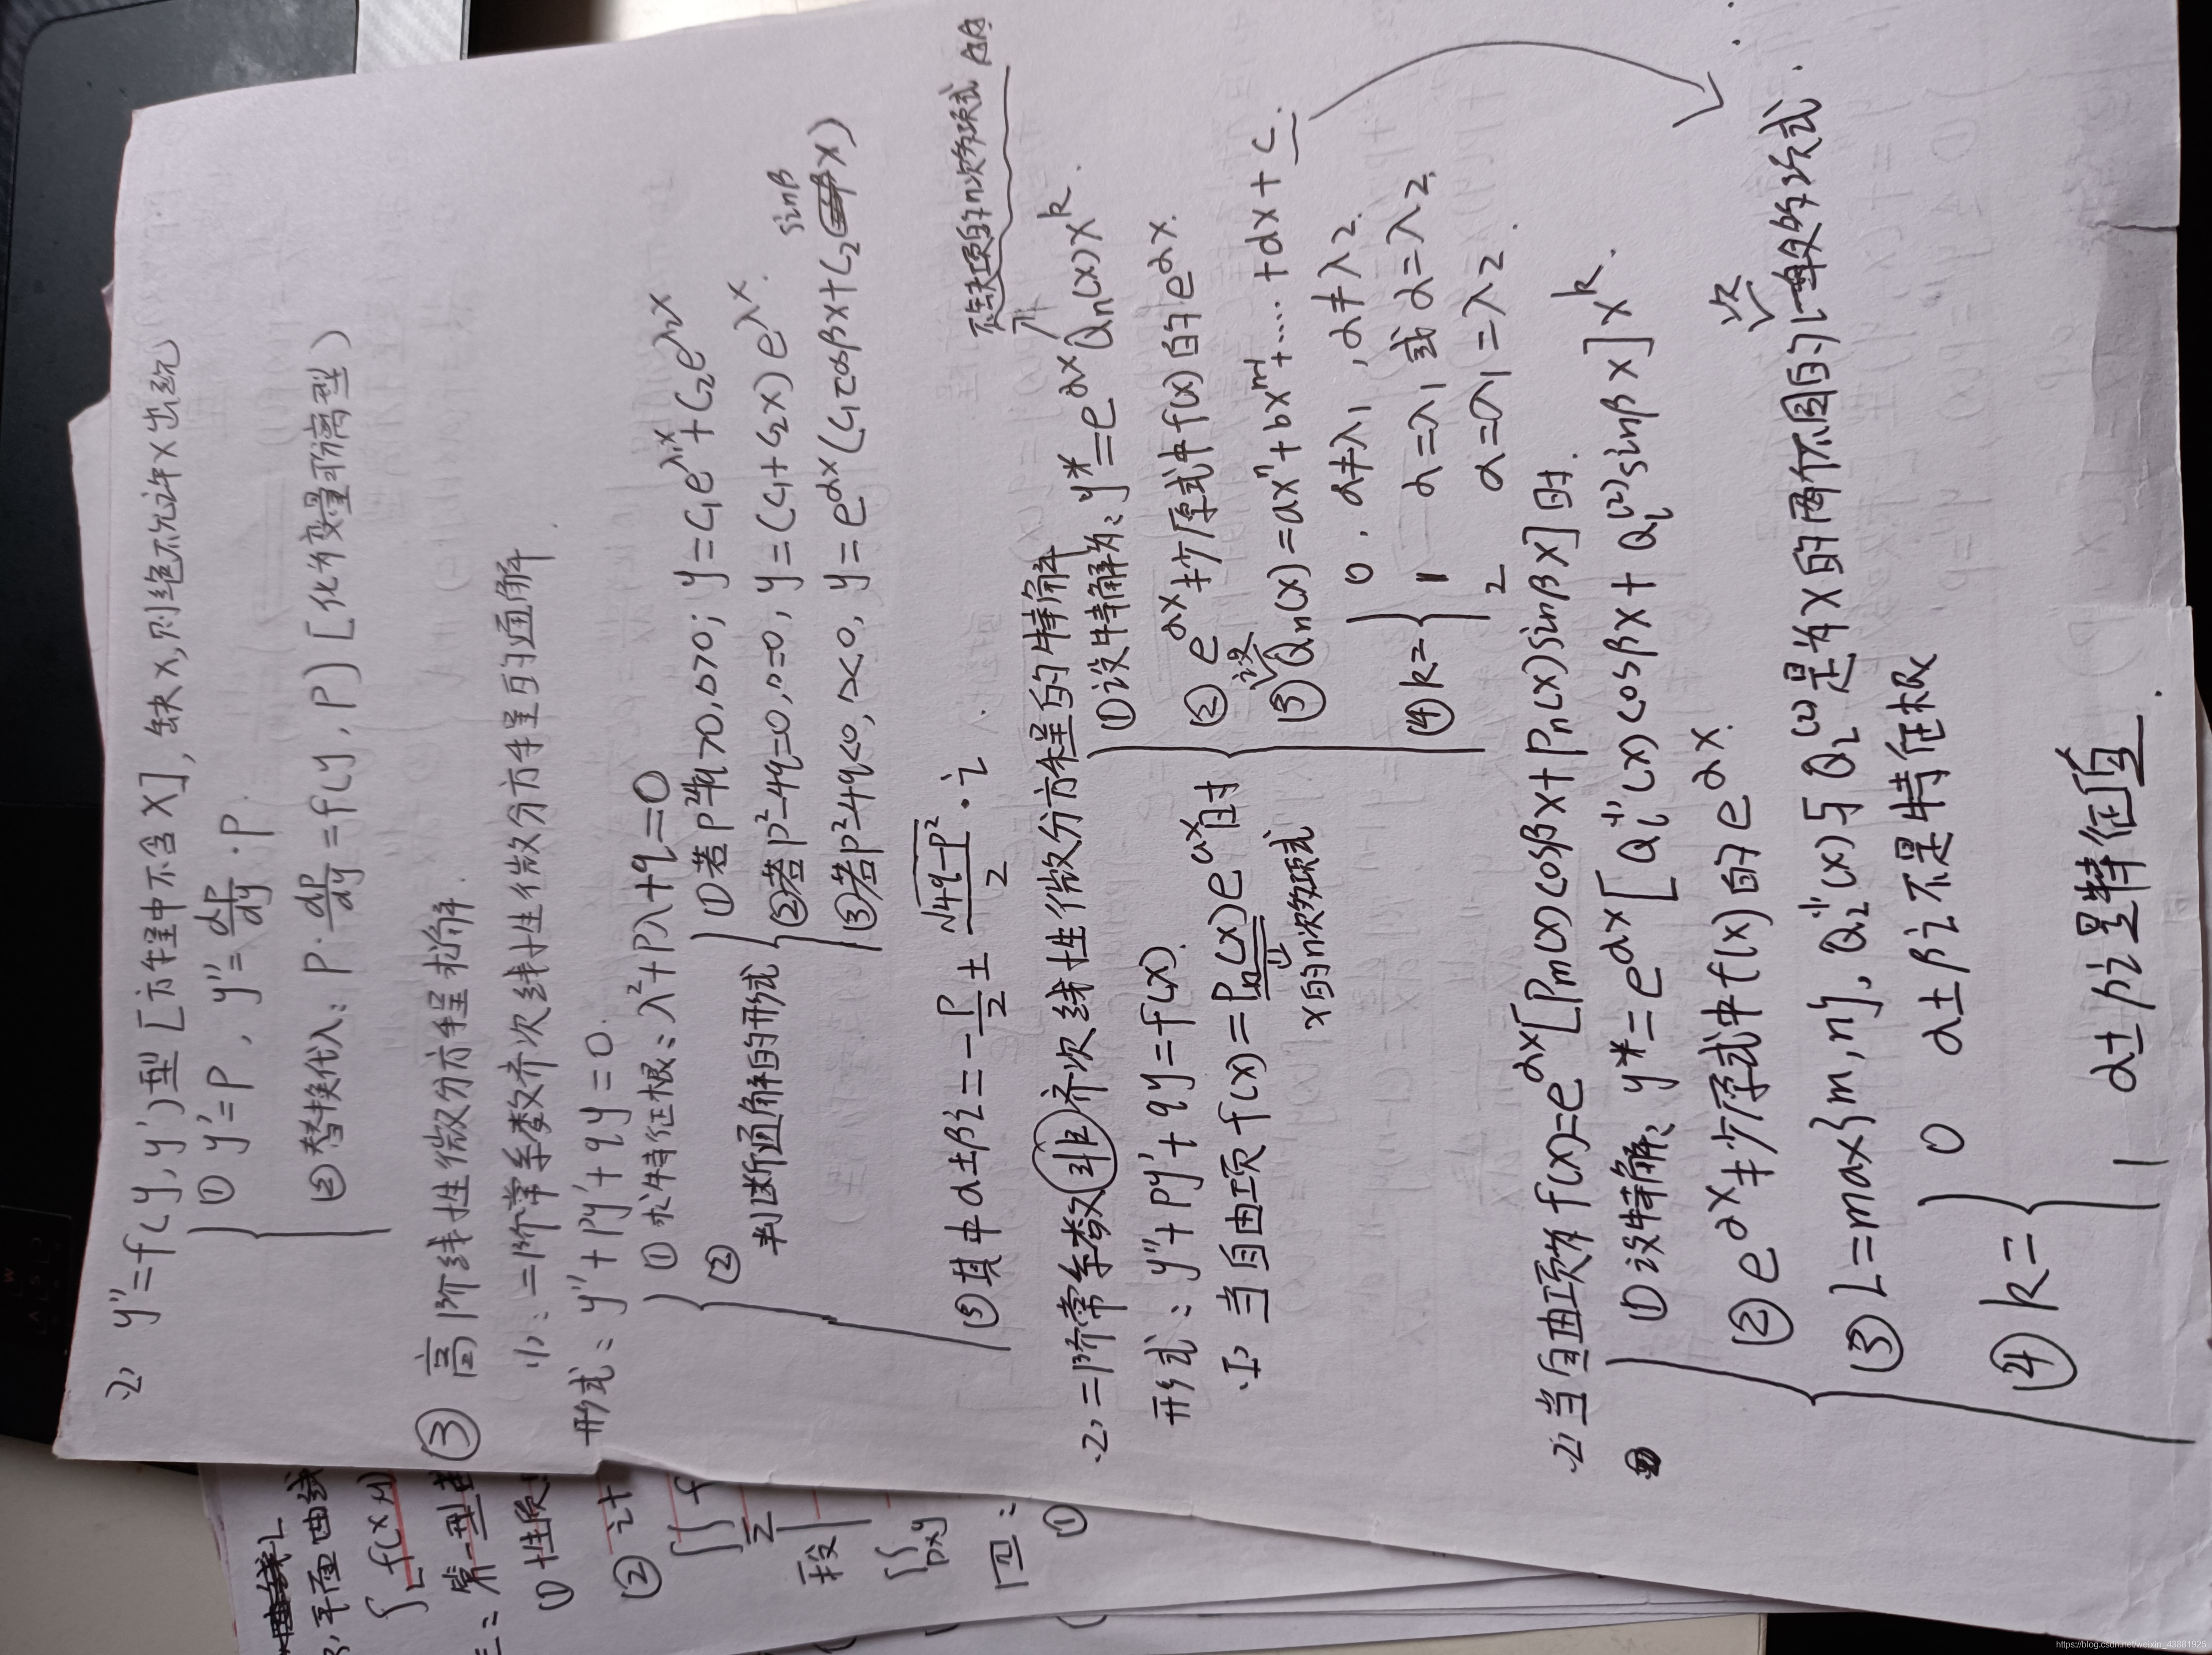 (2) y''=f(y,y')型[方程中不含x],缺x,则绝不允许x出现
① y'=P, y''=dP/dy·P.
②替换代入: P·dP/dy=f(y,P)[化为变量可分离型)
③ 高阶线性微分方程求解.
(1): 二阶常系数齐次线性微分方程的通解.
形式: y''+Py'+qy=0.
① 求特征根: λ²+Pλ+q=0
② 判断通解的形式
①若P²-4q>0,Δ>0; y=C₁e^λ₁x+C₂e^λ₂x
②若P²-4q=0,Δ=0, y=(C₁+C₂x)e^λx.
③若P²-4q<0,Δ<0, y=e^αx(C₁cosβx+C₂sinβx)
③其中α±βi=-P/2±√4q-P²/2·i
(2)二阶常系数非齐次线性微分方程的特解
形式: y''+Py'+qy=f(x).
(1) 当自由项f(x)=Pn(x)e^αx时
x的n次多项式
①设特解为: y*=e^αx Qn(x)x^k.
不缺项的n次多项式
②e^αx抄原式中f(x)的e^αx.
③设Qn(x)=ax^n+bx^n-1+....+dx+c.
④k= 0. α≠λ₁,α≠λ₂.
1 α=λ₁或α=λ₂
2 α=λ₁=λ₂.
(2)当自由项为f(x)=e^αx[Pm(x)cosβx+Pn(x)sinβx]时.
①设特解: y*=e^αx[Q_l^(1)(x)cosβx+Q_l^(2)sinβx]x^k.
②e^αx抄原式中f(x)的e^αx.
③L=max{m,n}, Q_2^(1)(x)与Q_L^(2)是为x的两个不同的l次多项式.
④k= 0 α±βi不是特征根.
1 α±βi是特征值.
L
,平面曲线
∫L f(x,y)
二: 第一型
① 性质
② 计
∫∫ f
Σ
投
∫∫
Dxy
四:
①
https://blog.csdn.net/weixin_43881925